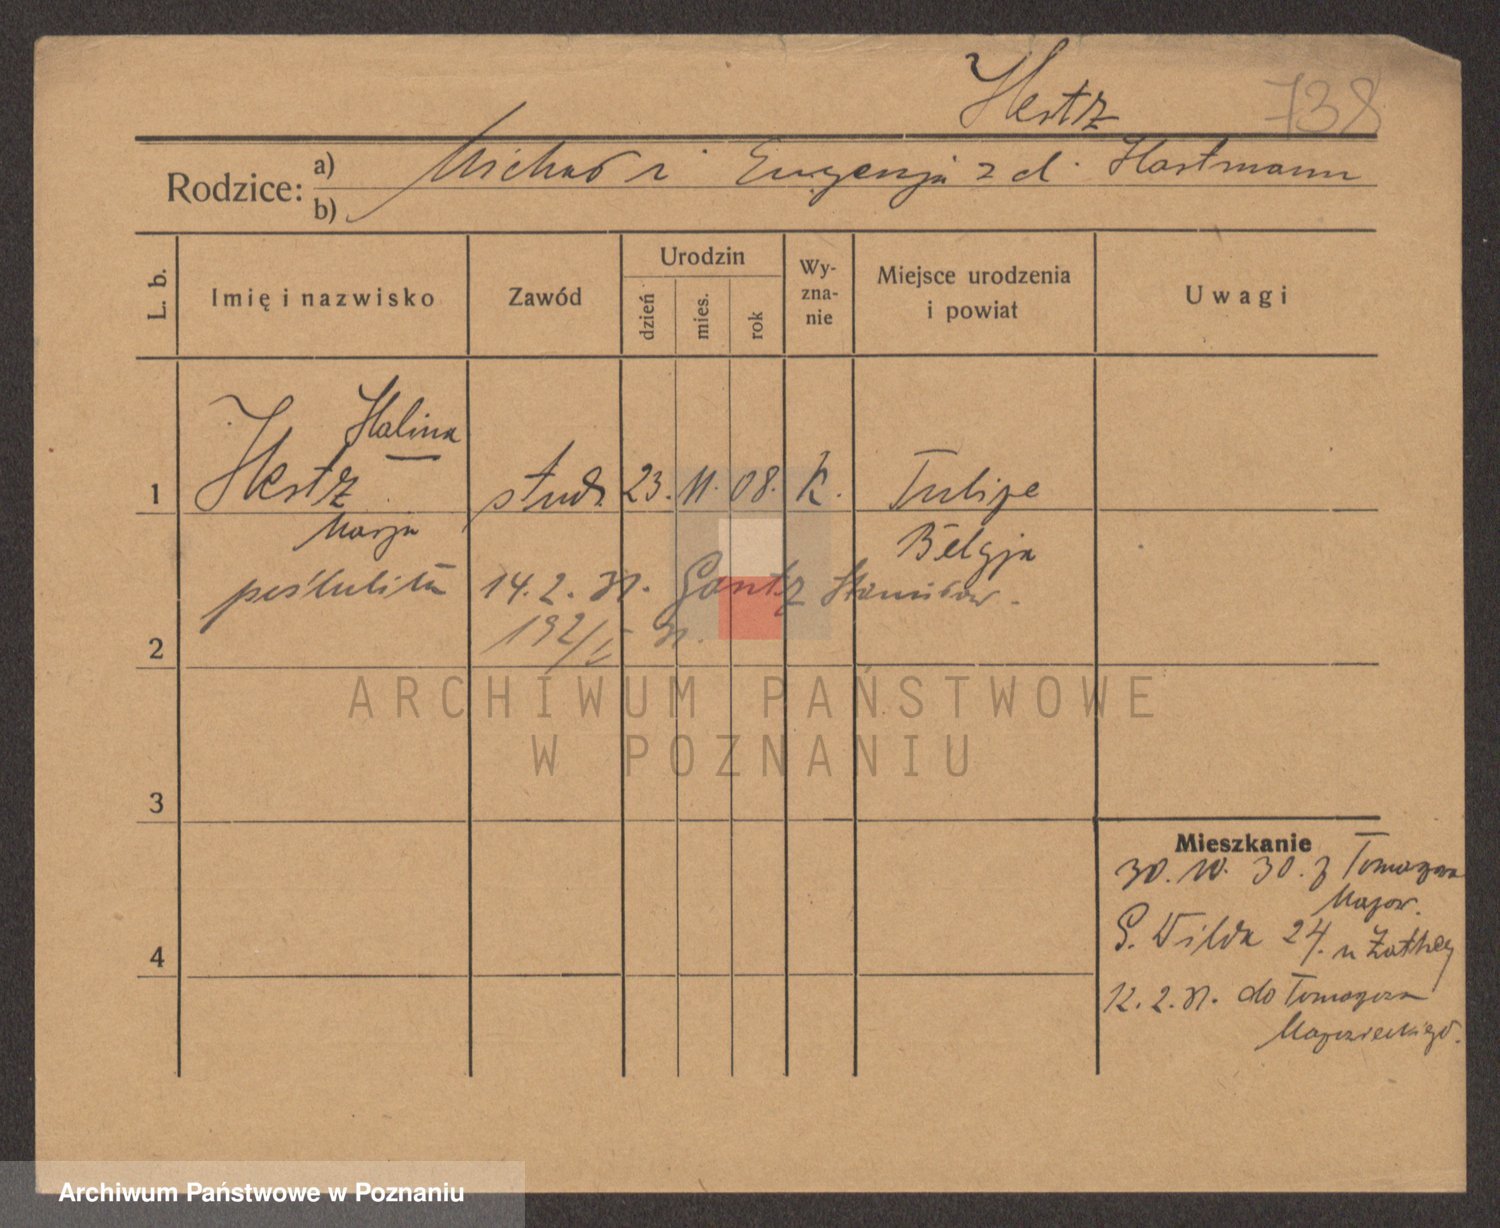 Hertz 738
Rodzice: a) Michał i Eugenja z d. Hartmann
b)
L. b. Imię i nazwisko Zawód Urodzin dzień mies. rok Wy-zna-nie Miejsce urodzenia i powiat Uwagi
Halina
1 Hertz stud. 23. 11. 08. K. Tulipe
Marja Belgja
poślubiła 14. 2. 31. Gantz Stanisław.
2 192/ 31.
ARCHIWUM PAŃSTWOWE
W POZNANIU
3
Mieszkanie
30. 10. 30. z Tomaszowa
Mazow.
4 G. Wilda 24. u Zathey
12. 2. 31. do Tomaszowa
Mazowieckiego.
Archiwum Państwowe w Poznaniu